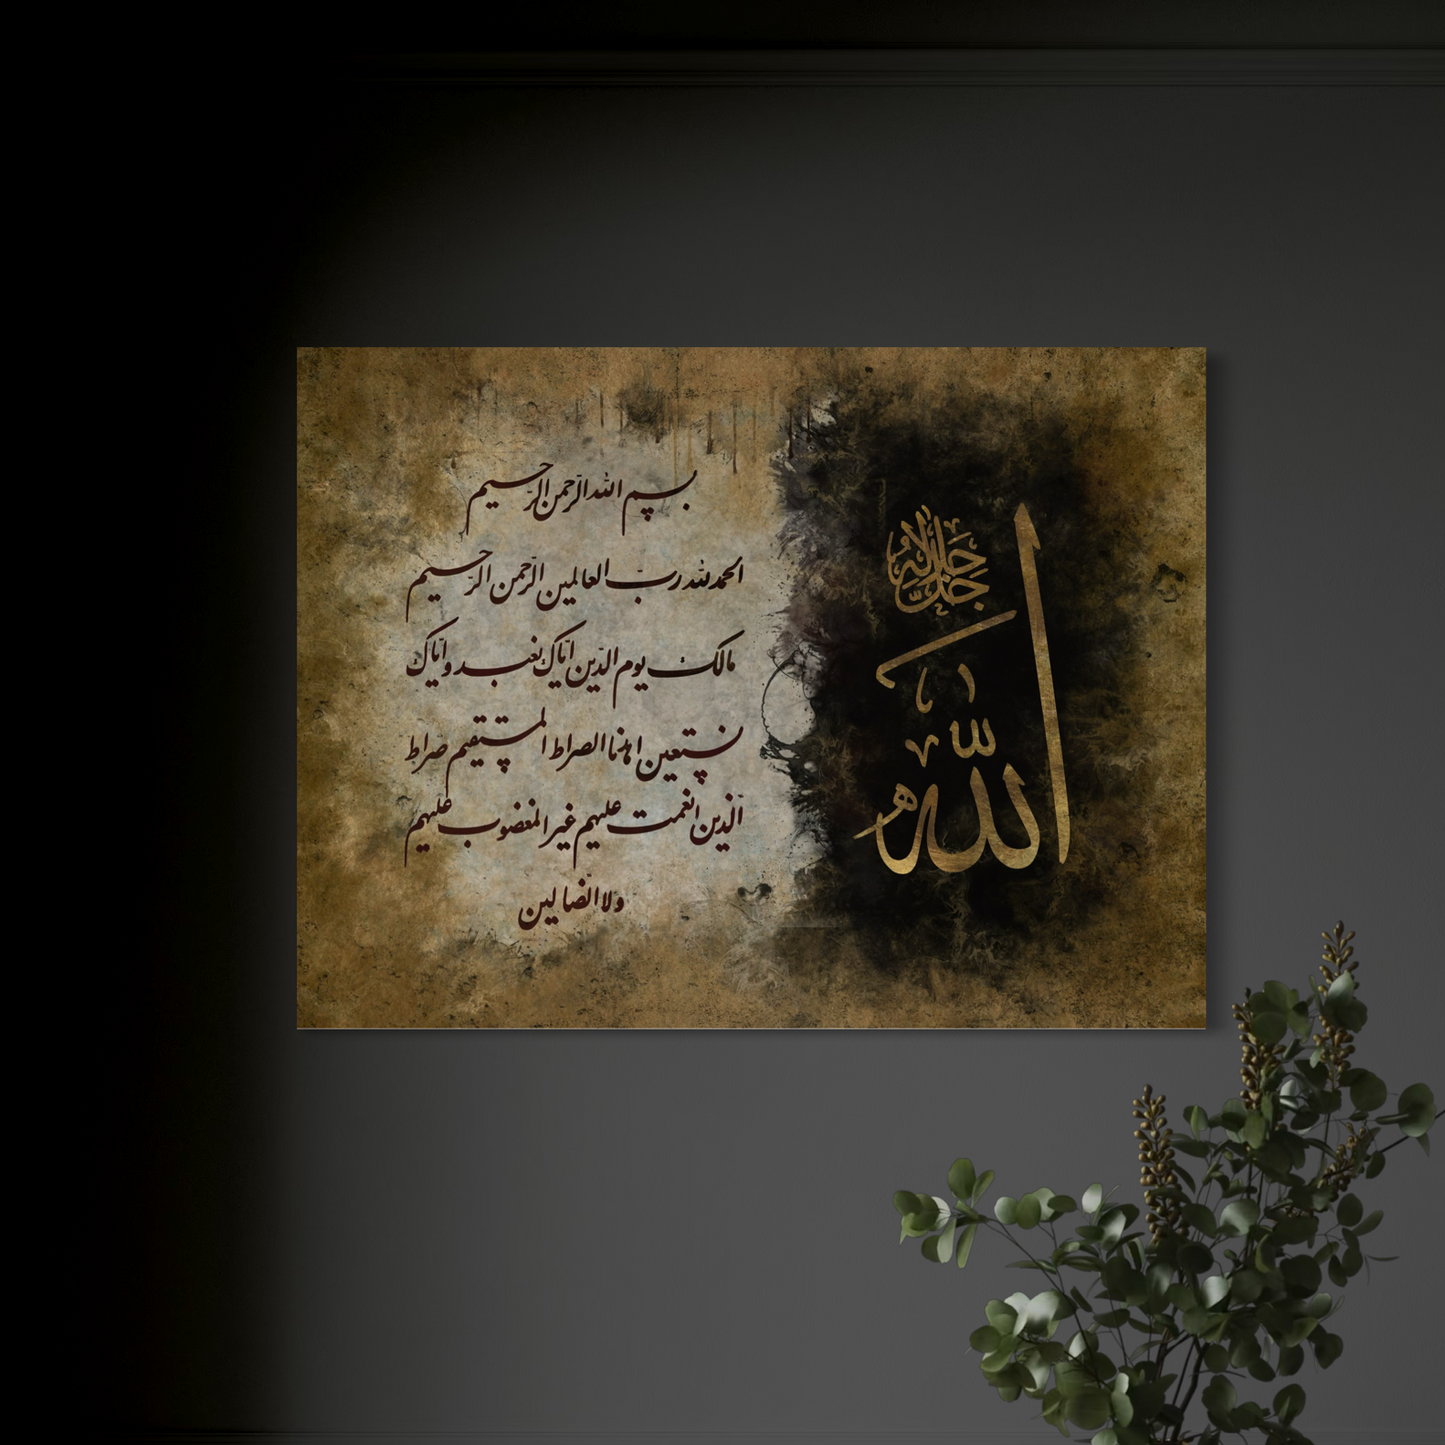 بسم الله الرحمن الرحيم
الحمد لله رب العالمين الرّحمن الرّحيم
مالك يوم الدّين ايّاك نعبد و ايّاك
نستعين اهدنا الصراط المستقيم صراط
الّذين انعمت عليهم غير المغضوب عليهم
ولا الضالين
الله
جل جلاله